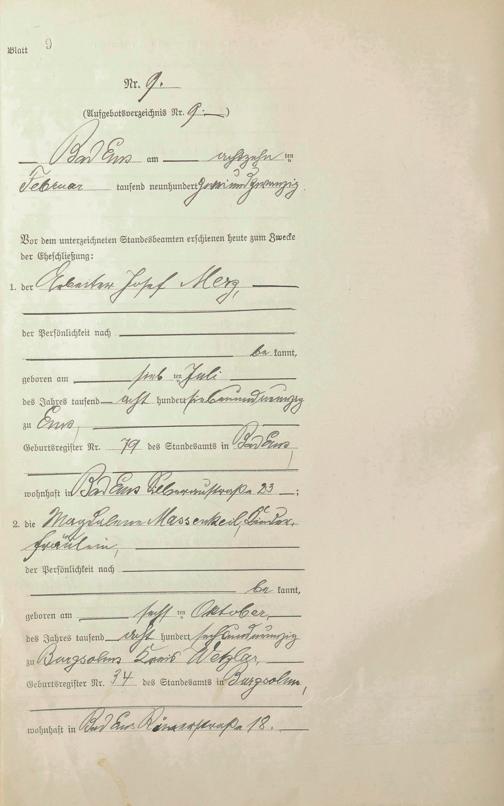 Blatt 9
Nr. 9.
(Aufgebotsverzeichnis Nr. 9.)
Bad Ems am achtzehn ten
Februar tausend neunhundert zweiundzwanzig.
Vor dem unterzeichneten Standesbeamten erschienen heute zum Zwecke
der Eheschließung:
1. der Arbeiter Josef Merg,
der Persönlichkeit nach
be kannt,
geboren am sieb ten Juli
des Jahres tausend acht hundert siebenundneunzig
zu Ems,
Geburtsregister Nr. 79 des Standesamts in Bad Ems,
wohnhaft in Bad Ems Silberaustraße 23;
2. die Magdalene Massenkeil, Kinder-
fräulein,
der Persönlichkeit nach
be kannt,
geboren am sechs ten Oktober,
des Jahres tausend acht hundert sechsundneunzig
zu Burgsolms Kreis Wetzlar,
Geburtsregister Nr. 34 des Standesamts in Burgsolms,
wohnhaft in Bad Ems Römerstraße 18.